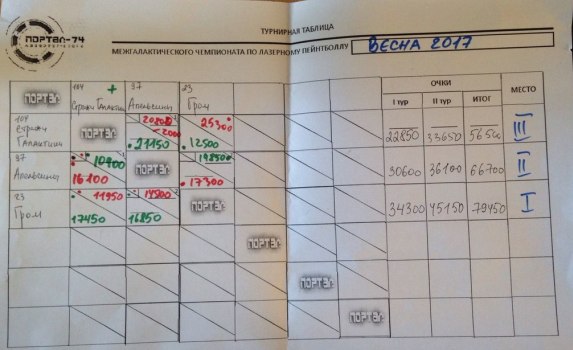 ПОРТАЛ-74
ТУРНИРНАЯ ТАБЛИЦА
МЕЖГАЛАКТИЧЕСКОГО ЧЕМПИОНАТА ПО ЛАЗЕРНОМУ ПЕЙНТБОЛЛУ
ВЕСНА 2017
ПОРТАЛ 104 + Стрижи Галактики 97 Апельсины 23 Гром
ОЧКИ МЕСТО
I тур II тур ИТОГ
104 Стрижи Галактики ПОРТАЛ 20800 -2000 21150 25300 12500 22850 33650 56500 III
97 Апельсины 10900 16100 ПОРТАЛ 19850 17300 30600 36100 66700 II
23 Гром 11950 17450 14500 16850 ПОРТАЛ 34300 45150 79450 I
ПОРТАЛ
ПОРТАЛ
ПОРТАЛ